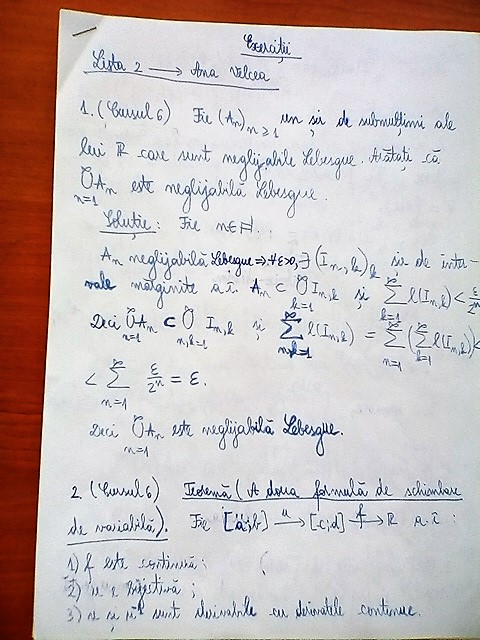 Exerciții
Lista 2 → Ana Velcea
1. (Cursul 6) Fie (An)n≥1 un șir de submulțimi ale
lui ℝ care sunt neglijabile Lebesgue. Arătați că
∞⋃n=1 An este neglijabilă Lebesgue.
Soluție: Fie n∈ℕ.
An neglijabilă Lebesgue ⇒ ∀ε>0, ∃ (In,k)k șir de inter-
vale mărginite a.î. An ⊂ ∞⋃k=1 In,k și ∞∑k=1 l(In,k) < ε/2ⁿ
Deci ∞⋃n=1 An ⊂ ∞⋃n,k=1 In,k și ∞∑n,k=1 l(In,k) = ∞∑n=1 (∞∑k=1 l(In,k)) <
< ∞∑n=1 ε/2ⁿ = ε.
Deci ∞⋃n=1 An este neglijabilă Lebesgue.
2. (Cursul 6) Teoremă (A doua formulă de schimbare
de variabilă). Fie [a;b] →u [c;d] →f ℝ a.î :
1) f este continuă;
2) u e bijectivă;
3) u și u⁻¹ sunt derivabile cu derivatele continue.